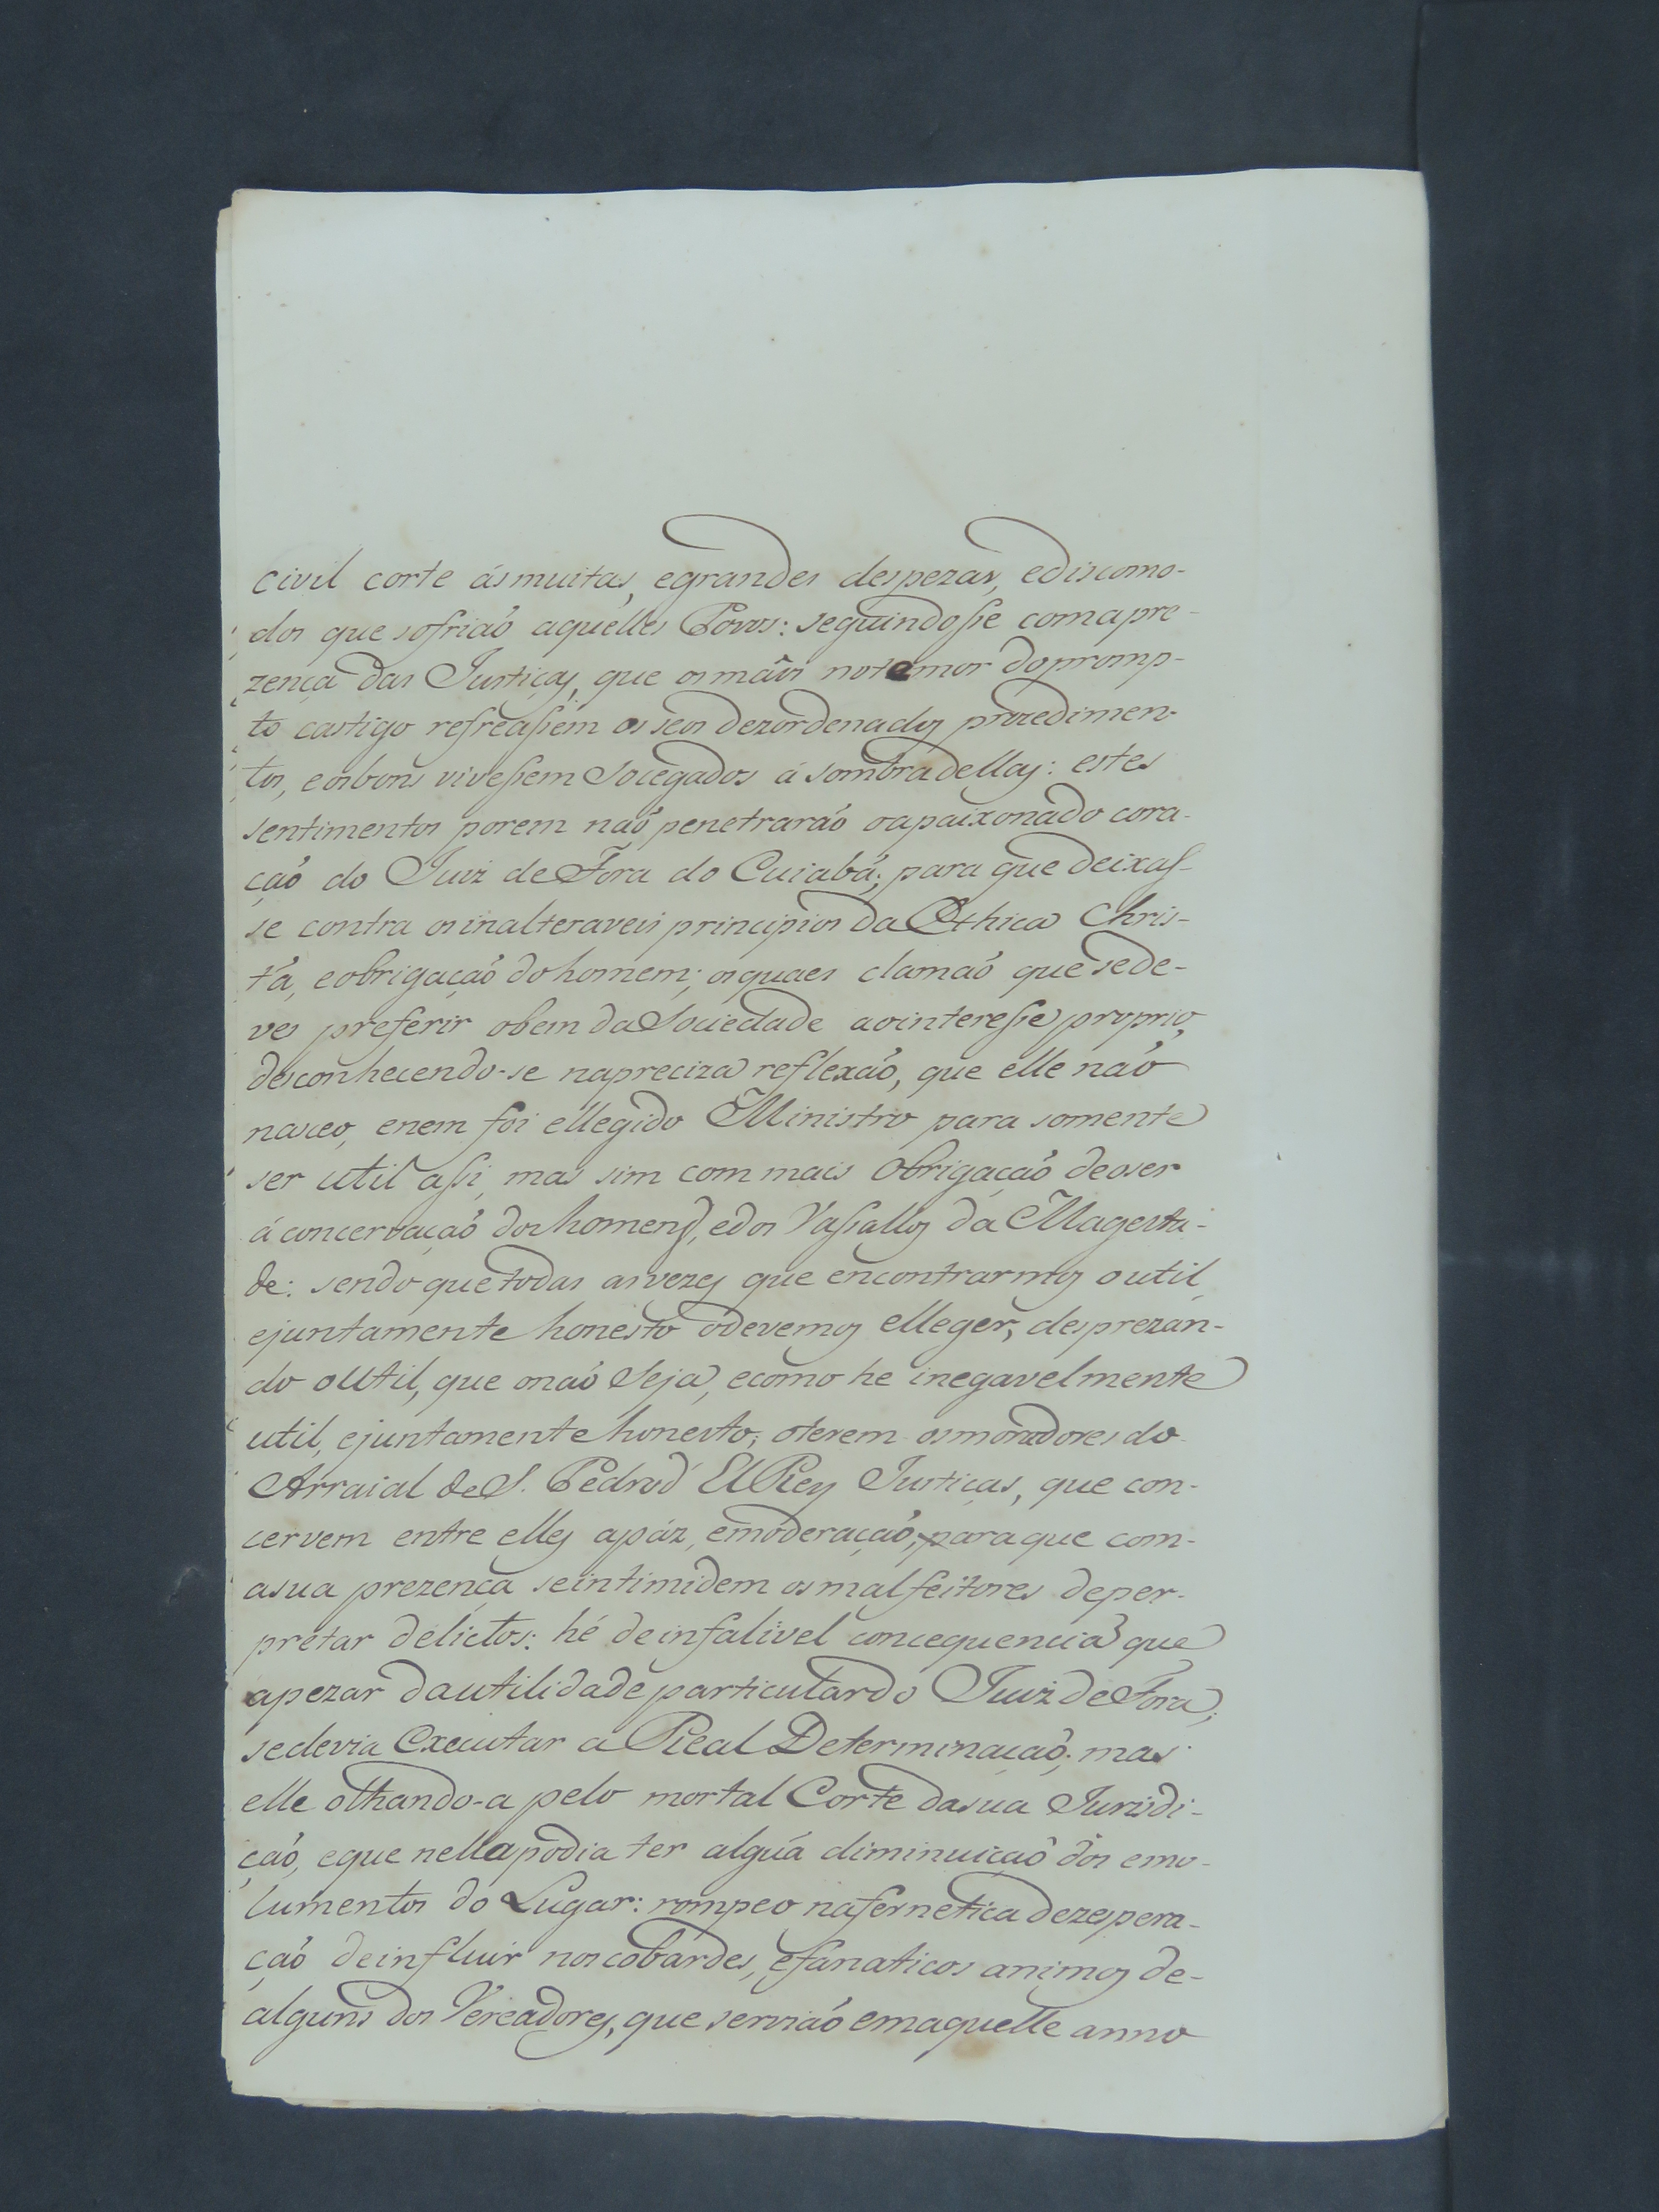 civil corte ásmuitas, egrandes despezas, ediscomo-
dos que sofriaõ aquelles Povos: seguindosse comapre-
zença das Justiças, que os mâos notemor dopromp-
to castigo refreassem os seos dezordenados procedimen-
tos, eosbons vivessem Socegados á sombradellas: estes
sentimentos porem naõ penetraraõ oapaixonado cora-
çaõ do Juiz deFora do Cuiabá; para que deixas-
se contra osinalteraveis principios da Ethica Chris-
tã, eobrigaçaõ dohomem; osquaes clamaõ que sede-
ve preferir obem daSociedade aointeresse proprio,
desconhecendo-se napreciza reflexaõ, que elle naõ
nasceo, enem foi ellegido Ministro para somente
ser util assi, mas sim com mais Obrigaçaõ deoser
á concervaçaõ doshomens, edos Vassallos da Magesta-
de: sendo quetodas asvezes que encontrarmos outil,
ejuntamente honesto odevemos elleger, desprezan-
do oUtil, que onaõ Seja, ecomo he inegavelmente
util, ejuntamente honesto; oterem osmoradores do
Arraial deS. Pedrod' ElRey Justiças, que con-
cervem entre elles apáz, emoderaçaõ, paraque com-
asua prezença seintimidem osmalfeitores deper-
pretar delictos: hé deinfalivel concequencia que
apezar dautilidade particulardo Juiz deFora,
sedevia Executar a Real Determinaçaõ; mas
elle olhando-a pelo mortal Corte dasua Jurisdi-
çaõ, eque nellapodia ter algúa diminuiçaõ dos emo-
lumentos do Lugar: rompeo nafernetica dezespera-
çaõ deinfluir noscobardes, efanaticos animos de-
alguns dos Vereadores, que serviaõ emaquelle anno